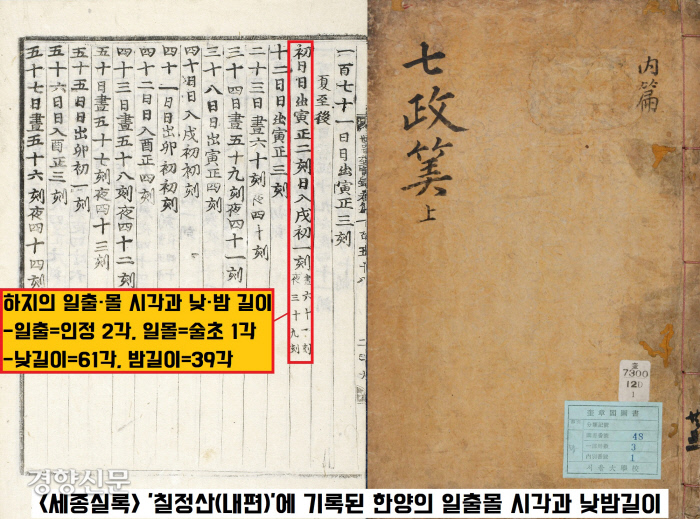 一百七十一日日出寅正三刻
夏至後
初日日出寅正二刻日入戌初一刻
晝六十一刻
夜三十九刻
十二日日出寅正三刻
二十三日晝六十刻夜四十刻
三十四日晝五十九刻夜四十一刻
三十八日日出寅正四刻
四十日日入戌初初刻
四十一日日出卯初初刻
四十二日日入酉正四刻
四十三日晝五十八刻夜四十二刻
五十日晝五十七刻夜四十三刻
五十五日日出卯初一刻
五十六日日入酉正三刻
五十七日晝五十六刻夜四十四刻
하지의 일출·몰 시각과 낮·밤 길이
-일출=인정 2각, 일몰=술초 1각
-낮길이=61각, 밤길이=39각
內篇
七政筭
上
奎
7300
120
1
奎章閣圖書
48
3
1
서울大學校
경향신문
<세종실록> '칠정산(내편)'에 기록된 한양의 일출몰 시각과 낮밤길이